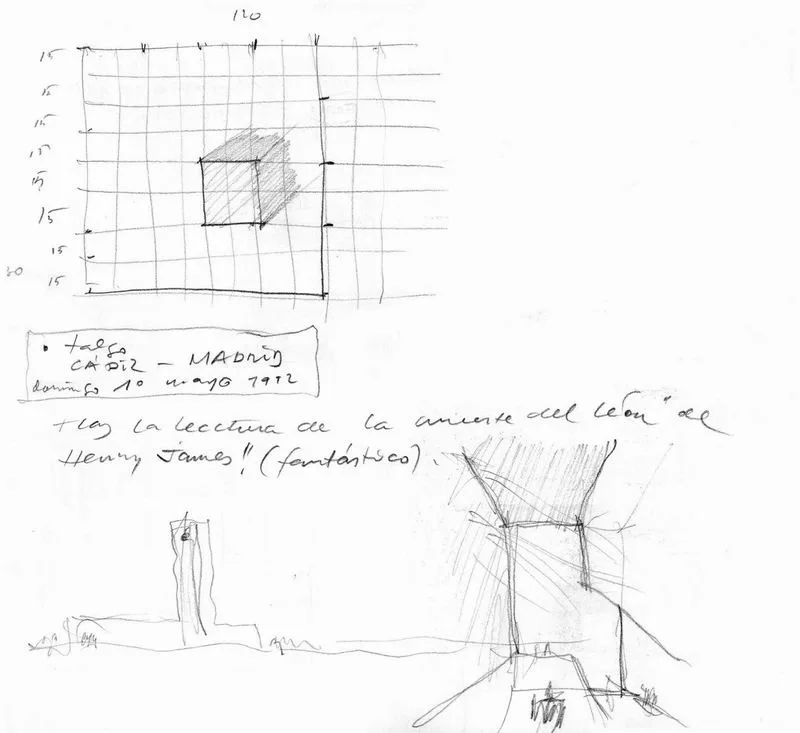 120
15
15
15
15
15
15
15
30
15
• talgo
CÁDIZ – MADRID
domingo 10 mayo 1992
tras la lectura de la muerte del león" de
Henry James!! (fantástico).